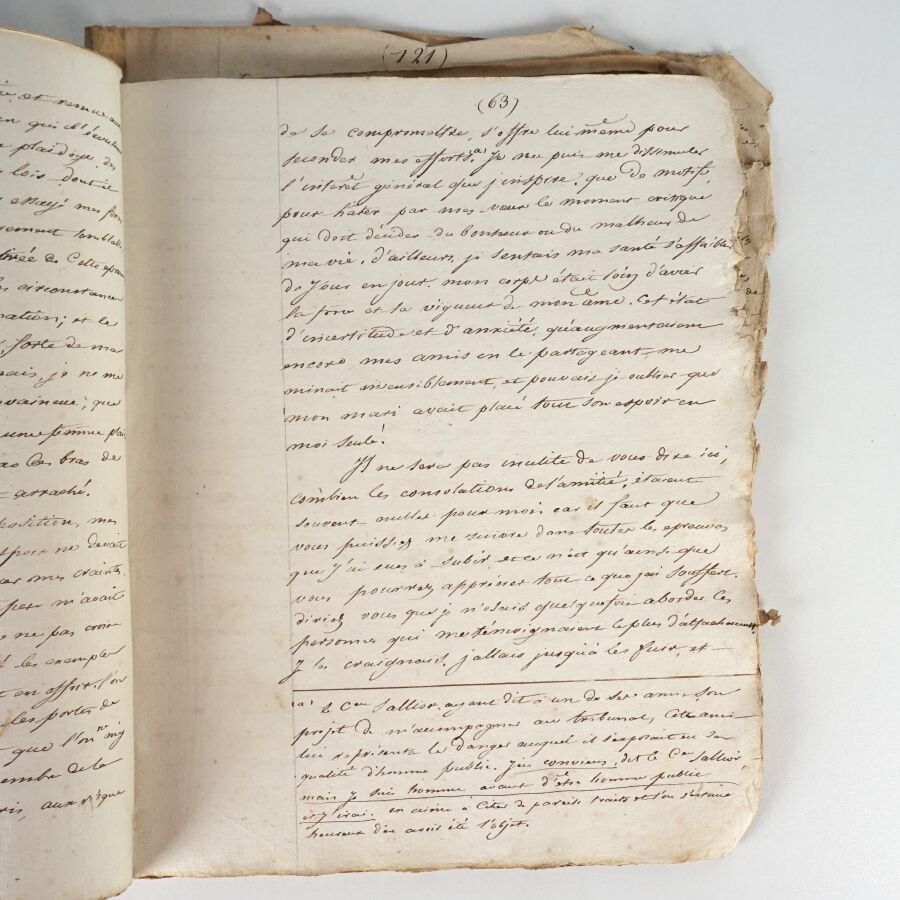 et remue
en qui s'écoulent
e plaidoyé, des
lois, dont il
essayé mes forces
tirée de Cette
les circonstances
nation; et le
, forte de ma
mais, je ne me
vaincue, que
une femme
les bras de
arraché.
position, mes
ne devait
mes craintes.
pere m'avait
ne pas croire
les exemples
en offrir, l'on
les portes de
que l'on n'en
membre de la
aux risque
(121)
(63)
de se compromettre, s'offre lui même pour
seconder mes efforts.(a) Je ne puis me dissimuler
l'interêt général que j'inspire. que de motifs,
pour hâter par mes vœux le moment critique
qui doit décider du bonheur ou du malheur de
ma vie. d'ailleurs, je sentais ma santé s'affaiblir
de jour en jour. mon corps était loin d'avoir
la force et la vigueur de mon âme. Cet état
d'incertitude et d'anxiété, qu'augmentaient
encore mes amis en le partageant, me
minait insensiblement, et pouvais-je oublier que
mon mari avait placé tout son espoir en
moi seule!
Il ne sera pas inutile de vous dire ici,
combien les consolations de l'amitié, étaient
souvent nulles pour moi, car il faut que
vous puissiez me suivre dans toutes les epreuves
que j'ai eues à subir, et ce n'est qu'ainsi que
vous pourrez apprécier tout ce que j'ai souffert.
diriez vous que je n'osais quelquefois aborder les
personnes qui me témoignaient le plus d'attachement,
je les craignais, j'allais jusqu'à les fuir, et —
(a) le Cen Sallior, ayant dit à un de ses amis son
projet de m'accompagner au tribunal, Cet ami
lui représenta le danger auquel il s'exposait en sa
qualité d'homme public. J'en conviens, dit le Cen Sallior,
mais je suis homme, avant d'être homme public
et j'irai. on aime à Citer de pareils traits et l'on s'estime
heureux d'en avoir été l'objet.